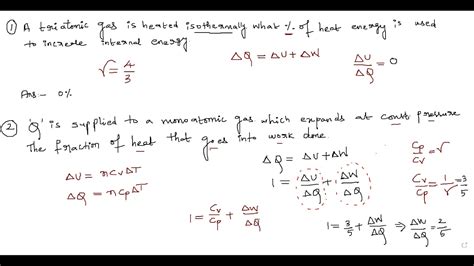 ① A triatomic gas is heated isothermally what % of heat energy is used
to increse internal energy
γ = 4/3
ΔQ = ΔU + ΔW
ΔU/ΔQ = 0
Ans - 0%
② 'Q' is supplied to a monoatomic gas which expands at const pressure
The fraction of heat that goes into work done
ΔQ = ΔU + ΔW
Cp/Cv = γ
ΔU = nCvΔT
1 = ΔU/ΔQ + ΔW/ΔQ
Cv/Cp = 1/γ = 3/5
ΔQ = nCpΔT
1 = Cv/Cp + ΔW/ΔQ
1 = 3/5 + ΔW/ΔQ ⇒ ΔW/ΔQ = 2/5